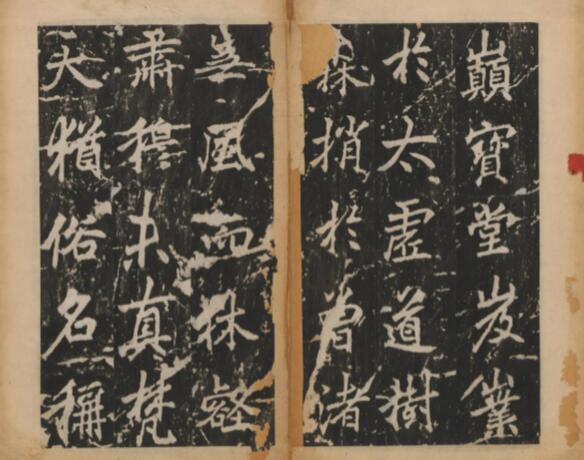 巔寶堂岌業
於太虛道樹
森捎於曾渚
無風而林壑
肅穆未真梵
天猶俗名稱